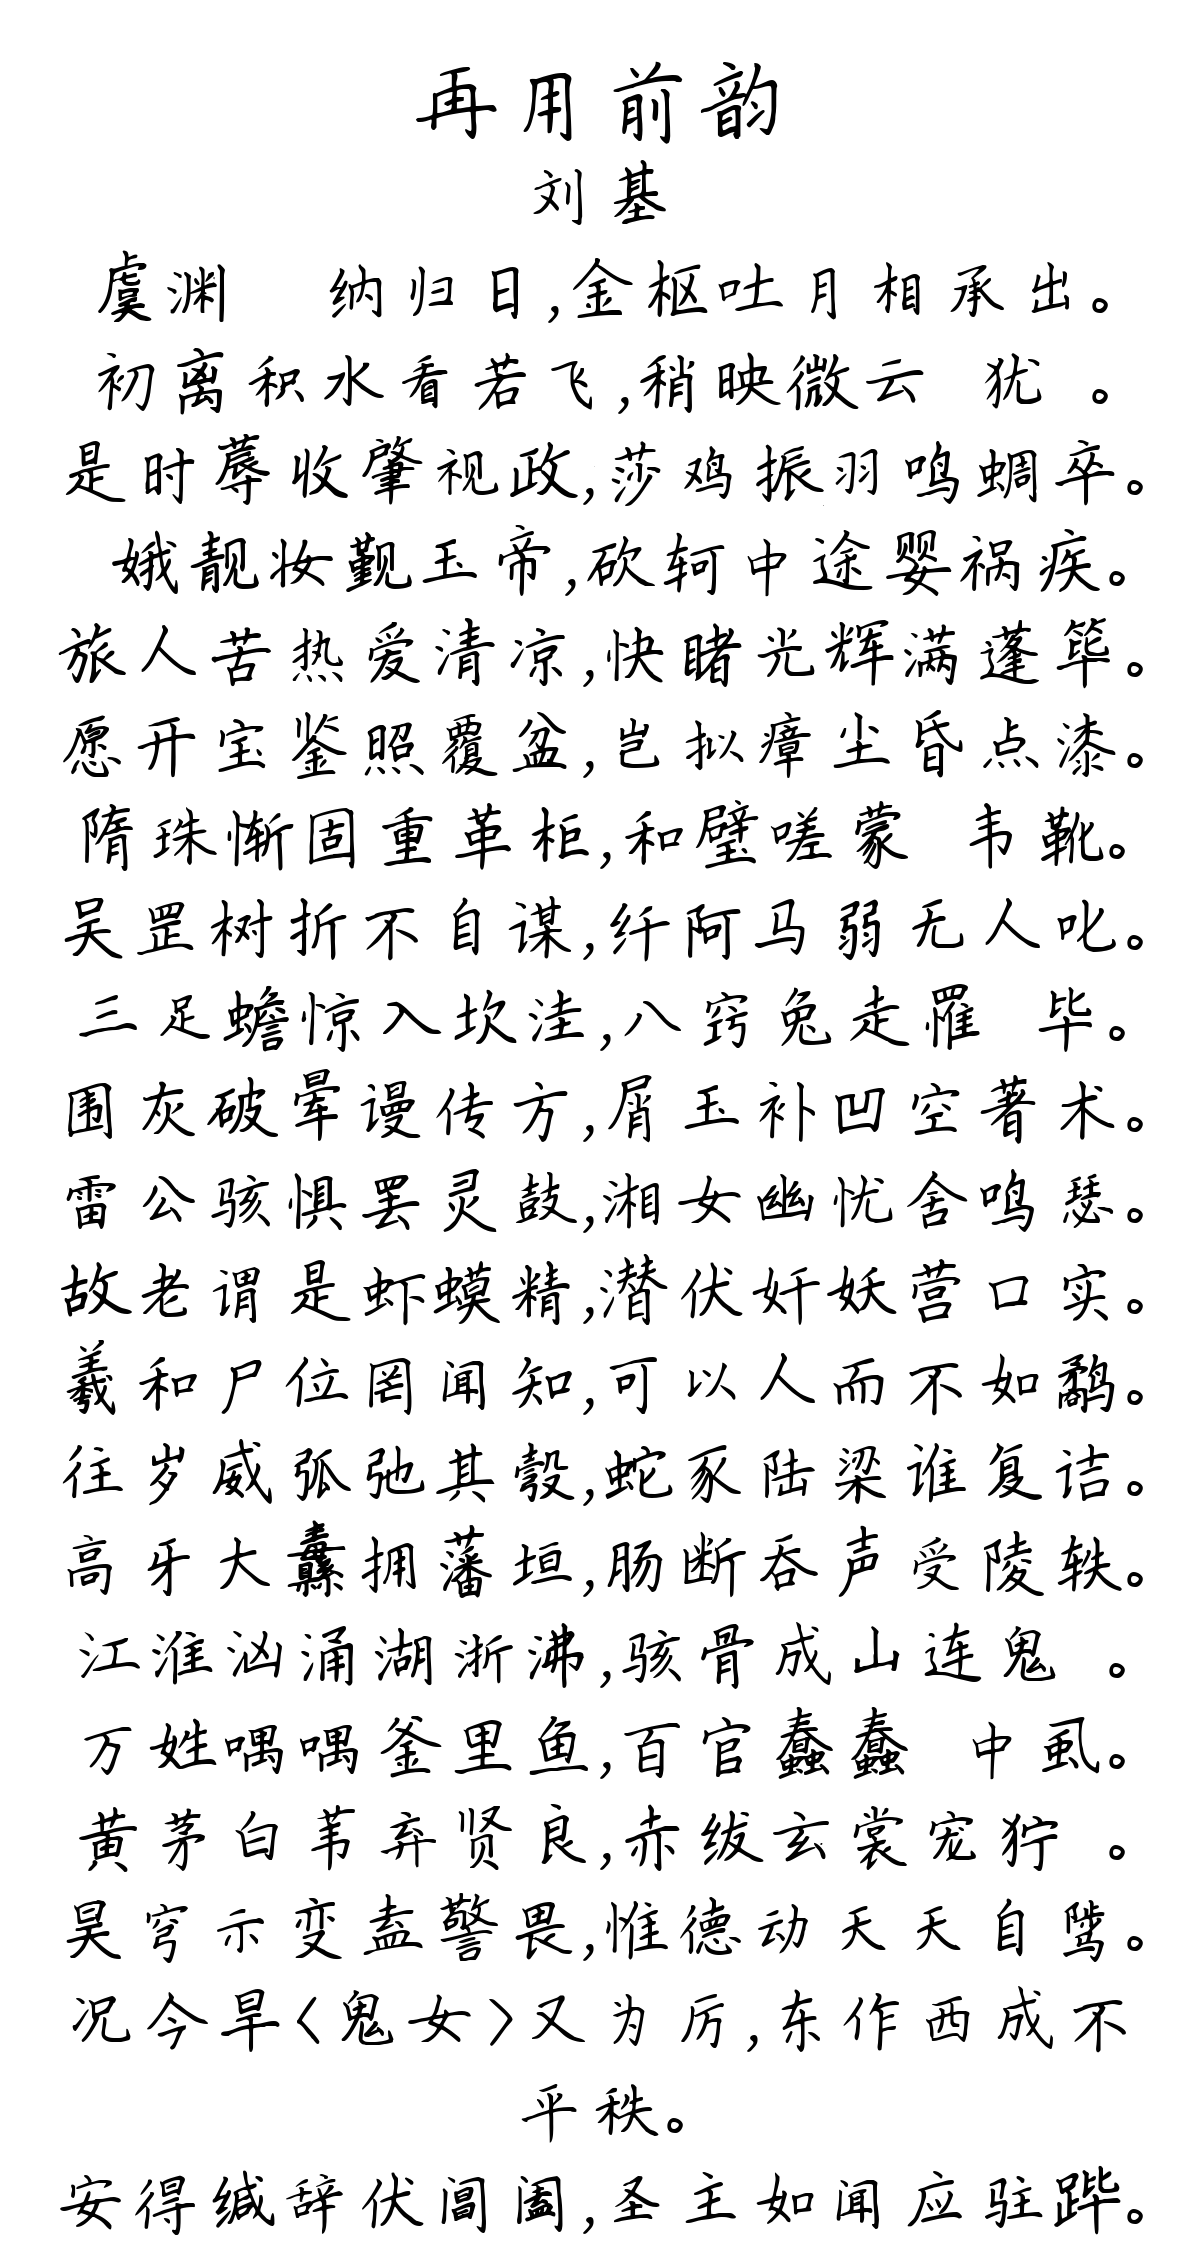 再用前韵
刘基
虞渊 纳归日,金枢吐月相承出。
初离积水看若飞,稍映微云 犹 。
是时蓐收肇视政,莎鸡振羽鸣蜩卒。
娥靓妆觐玉帝,砍轲中途婴祸疾。
旅人苦热爱清凉,快睹光辉满蓬筚。
愿开宝鉴照覆盆,岂拟瘴尘昏点漆。
隋珠惭固重革柜,和璧嗟蒙 韦靴。
吴罡树折不自谋,纤阿马弱无人叱。
三足蟾惊入坎洼,八窍兔走罹 毕。
围灰破晕谩传方,屑玉补凹空著术。
雷公骇惧罢灵鼓,湘女幽忧舍鸣瑟。
故老谓是虾蟆精,潜伏奸妖营口实。
羲和尸位罔闻知,可以人而不如鹬。
往岁威弧弛其彀,蛇豕陆梁谁复诘。
高牙大纛拥藩垣,肠断吞声受陵轶。
江淮汹涌湖浙沸,骇骨成山连鬼 。
万姓喁喁釜里鱼,百官蠢蠢 中虱。
黄茅白苇弃贤良,赤绂玄裳宠狞 。
昊穹示变盍警畏,惟德动天天自骘。
况今旱<鬼女>又为厉,东作西成不
平秩。
安得缄辞伏阊阖,圣主如闻应驻跸。